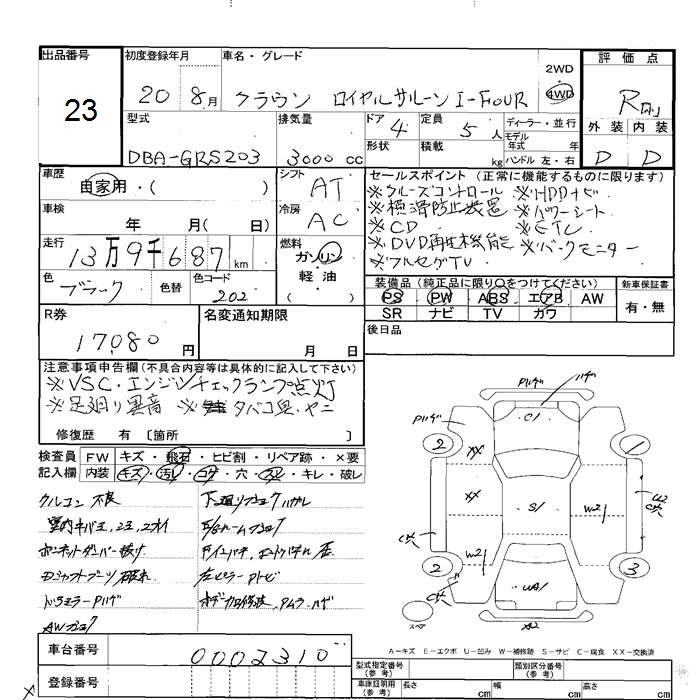 出品番号
23
初度登録年月
20 8月
車名・グレード
クラウン ロイヤルサルーン I-FOUR
2WD
4WD
評価点
R
外装 内装
D D
型式
DBA-GRS203
排気量
3000 cc
ドア
4
形状
定員
5 人
積載
kg
ディーラー・並行
モデル年式 年
ハンドル 左・右
車歴
自家用・( )
シフト
AT
車検
年 月( 日)
冷房
AC
走行
13万9千687 km
燃料
ガソリン
軽・油
( )
色
ブラック
色替
色コード
202
セールスポイント (正常に機能するものに限ります)
※クルーズコントロール ※HDDナビ
※横滑防止装置 ※パワーシート
※CD ※ETC
※DVD再生機能 ※バックモニター
※フルセグTV
装備品 (純正品に限り○をつけてください)
PS PW ABS エアB AW
SR ナビ TV カワ
新車保証書
有・無
後日品
R券
17,080 円
名変通知期限
月 日
注意事項申告欄(不具合内容等は具体的に記入して下さい)
※VSC・エンジンチェックランプ点灯
※足廻り異音 ※タバコ臭・ヤニ
修復歴 有 〔箇所 〕
検査員記入欄
FW キズ・飛石・ヒビ割・リペア跡・×要
内装 キズ・汚レ・コゲ・穴・スレ・キレ・破レ
クルコン不良
ボンネットダンパー抜け
ドラミラーPハゲ
AWガリ
車台番号
0002310
登録番号
Pハゲ
ハゲ
Pハゲ
C1
2
1
XX
XX
S1
W2
W2
W2
2
3
UA1
スペア
X2
A-キズ E-エクボ U-凹み W-補修跡 S-サビ C-腐食 XX-交換済
型式指定番号(参考)
類別区分番号(参考)
車庫証明用(参考)
長さ cm
幅 cm
高さ cm